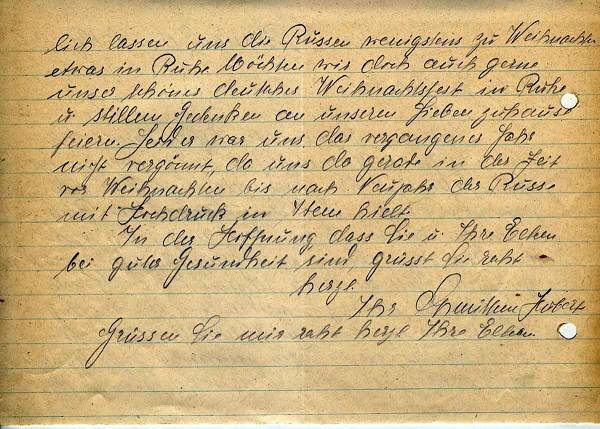 lich lassen uns die Russen wenigstens zu Weihnachten
etwas in Ruhe. Möchten wir doch auch gerne
unser schönes deutsches Weihnachtsfest in Ruhe
u. stillem Gedenken an unseren Lieben zuhause
feiern. Leider war uns das vergangene Jahr
nicht vergönnt, da uns da gerade in der Zeit
vor Weihnachten bis nach Neujahr der Russe
mit Hochdruck in Atem hielt.
In der Hoffnung dass Sie u. Ihre Eltern
bei guter Gesundheit sind, grüsst Sie recht
herzl.
Ihr
Grüssen Sie mir recht herzl. Ihre Eltern.